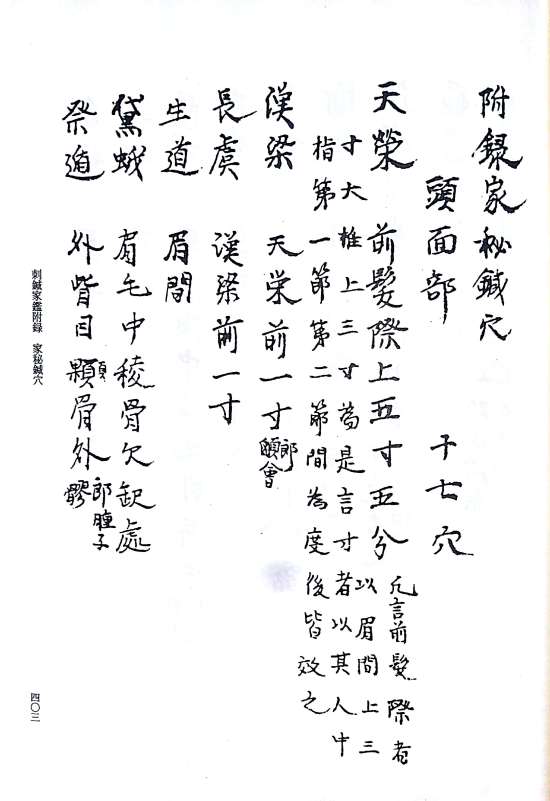 附録家秘鍼穴
頭面部 十七穴
天榮 前髮際上五寸五分 凡言前髮際者以眉間上三
寸大椎上三寸為是言寸者以其人中
指第一節第二節間為度後皆效之
漢梁 天榮前一寸 郎顖會
長虞 漢梁前一寸
生道 眉間
黛蛾 眉毛中稜骨欠缺處
祭遁 外眥目顆眉外 郎瞳子髎
刺鍼家鑑附録 家秘鍼穴
四〇三